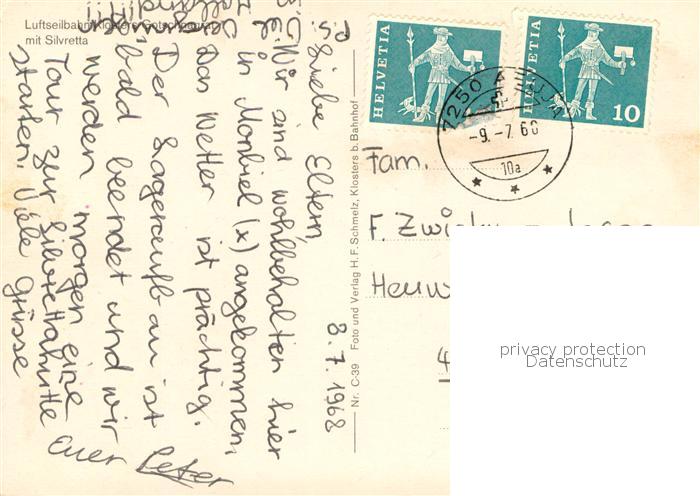 Luftseilbahn Klosters-Gotschnagrat
mit Silvretta
8.7.1968
Liebe Eltern,
Wir sind wohlbehalten hier
in Monbiel (x) angekommen.
Das Wetter ist prächtig.
Der Lageraufbau ist
bald beendet und wir
werden morgen eine
Tour zur Silvrettahütte
starten. Viele Grüsse
Euer Peter
Nr. C-39 Foto und Verlag H. F. Schmelz, Klosters b. Bahnhof
HELVETIA
HELVETIA
10
7250
-9.-7.68
10a
Fam.
F. Zwicky
4
privacy protection
Datenschutz